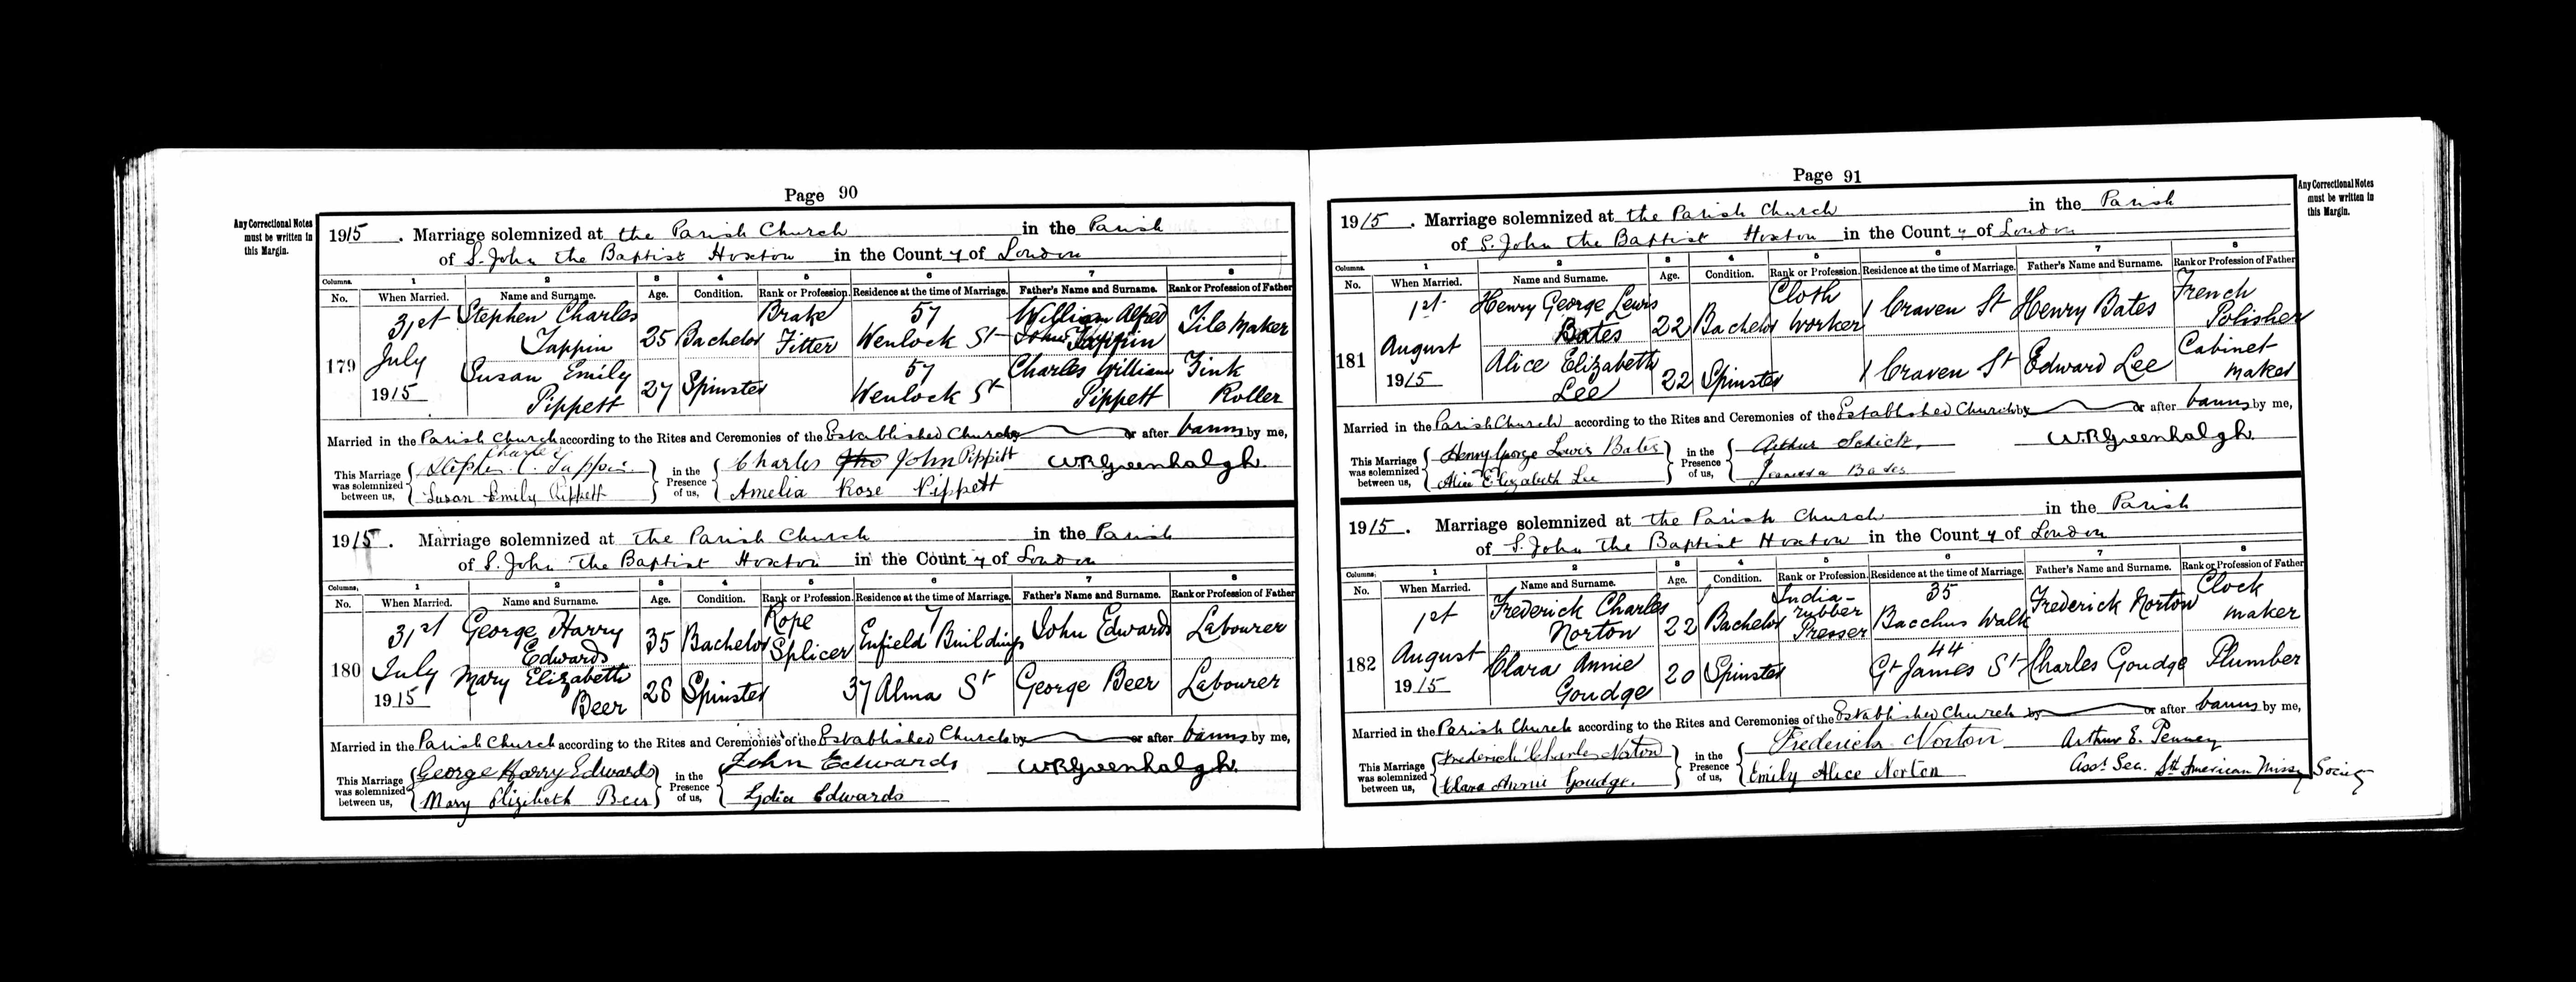 Page 90
Any Correctional Notes
must be written in
this Margin.
1915. Marriage solemnized at the Parish Church in the Parish
of S. John the Baptist Hoxton in the County of London
Columns. 1 2 3 4 5 6 7 8
No. When Married. Name and Surname. Age. Condition. Rank or Profession. Residence at the time of Marriage. Father's Name and Surname. Rank or Profession of Father
179 31st July 1915 Stephen Charles Tappin 25 Bachelor Brake Fitter 57 Wenlock St William Alfred Tappin Tile Maker
Susan Emily Pippett 27 Spinster 57 Wenlock St Charles William Pippett Zink Roller
Married in the Parish Church according to the Rites and Ceremonies of the Established Church by or after banns by me,
This Marriage was solemnized between us, Stephen C. Tappin Charles
Susan Emily Pippett
in the Presence of us, Charles John Pippett
Amelia Rose Pippett
W.R.Greenhalgh.
1915. Marriage solemnized at the Parish Church in the Parish
of S. John the Baptist Hoxton in the County of London
Columns. 1 2 3 4 5 6 7 8
No. When Married. Name and Surname. Age. Condition. Rank or Profession. Residence at the time of Marriage. Father's Name and Surname. Rank or Profession of Father
180 31st July 1915 George Harry Edwards 35 Bachelor Rope Splicer 7 Enfield Buildings John Edwards Labourer
Mary Elizabeth Beer 28 Spinster 37 Alma St George Beer Labourer
Married in the Parish Church according to the Rites and Ceremonies of the Established Church by or after banns by me,
This Marriage was solemnized between us, George Harry Edwards
Mary Elizibeth Beer
in the Presence of us, John Edwards
Lydia Edwards
W.R.Greenhalgh.
Page 91
Any Correctional Notes
must be written in
this Margin.
1915. Marriage solemnized at the Parish Church in the Parish
of S. John the Baptist Hoxton in the County of London
Columns. 1 2 3 4 5 6 7 8
No. When Married. Name and Surname. Age. Condition. Rank or Profession. Residence at the time of Marriage. Father's Name and Surname. Rank or Profession of Father
181 1st August 1915 Henry George Lewis Bates 22 Bachelor Cloth Worker 1 Craven St Henry Bates French Polisher
Alice Elizabeth Lee 22 Spinster 1 Craven St Edward Lee Cabinet Maker
Married in the Parish Church according to the Rites and Ceremonies of the Established Church by or after banns by me,
This Marriage was solemnized between us, Henry George Lewis Bates
Alice Elizabeth Lee
in the Presence of us, Arthur Schick
Bates
W.R.Greenhalgh.
1915. Marriage solemnized at the Parish Church in the Parish
of S. John the Baptist Hoxton in the County of London
Columns. 1 2 3 4 5 6 7 8
No. When Married. Name and Surname. Age. Condition. Rank or Profession. Residence at the time of Marriage. Father's Name and Surname. Rank or Profession of Father
182 1st August 1915 Frederick Charles Norton 22 Bachelor India-rubber Presser 35 Bacchus Walk Frederick Norton Clock maker
Clara Annie Goudge 20 Spinster 44 Gt James St Charles Goudge Plumber
Married in the Parish Church according to the Rites and Ceremonies of the Established Church by or after banns by me,
This Marriage was solemnized between us, Frederick Charles Norton
Clara Annie Goudge.
in the Presence of us, Frederick Norton
Emily Alice Norton
Arthur E. Penney
Asst Sec. Sth American Missy Society